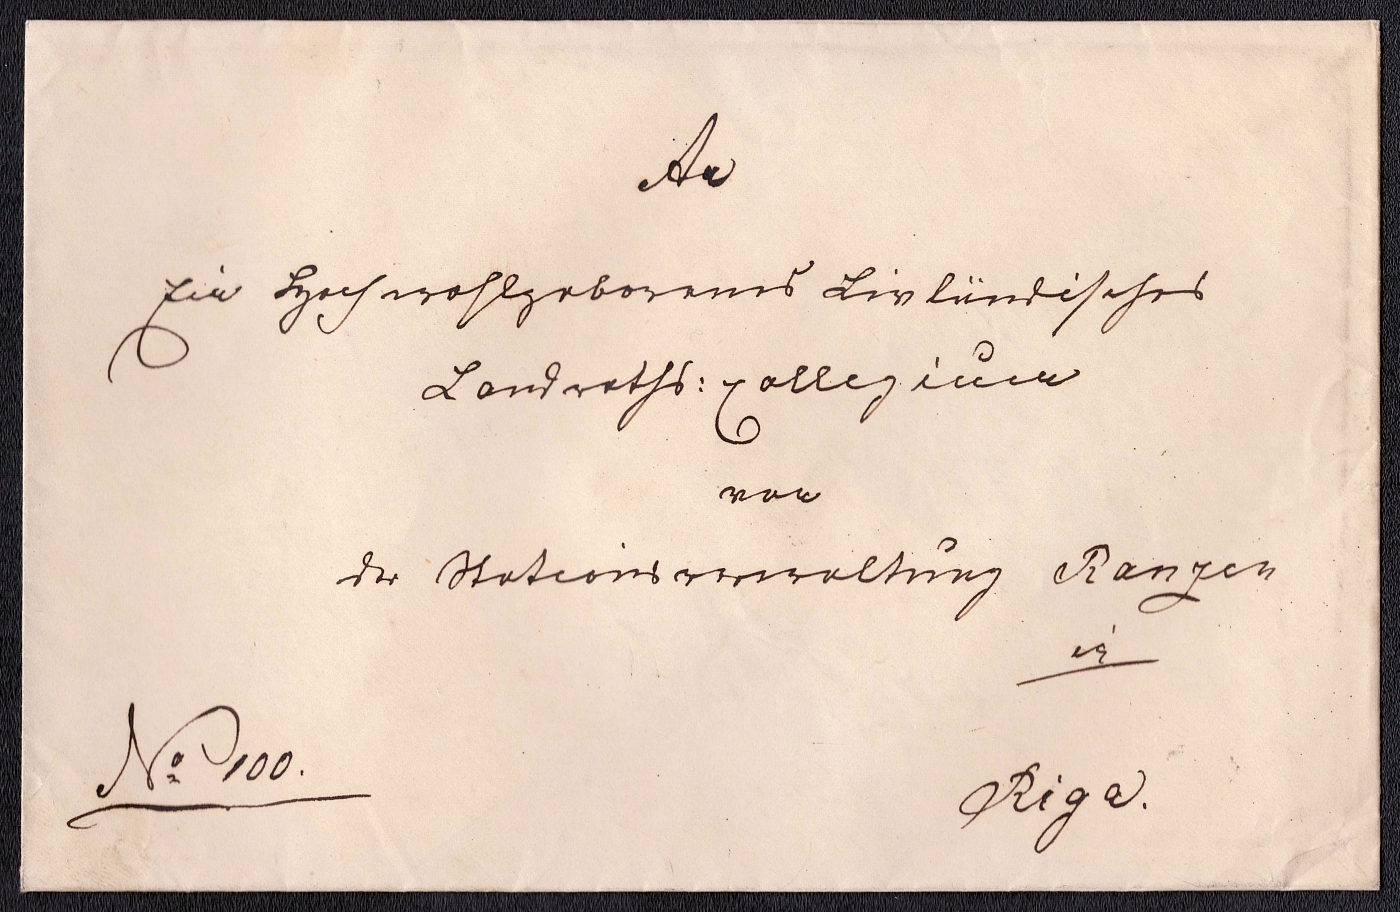 An
Ein Hochwohlgeborenes Livländisches
Landraths: Collegium
von
der Stationsverwaltung Ranzen
in
No 100.
Riga.